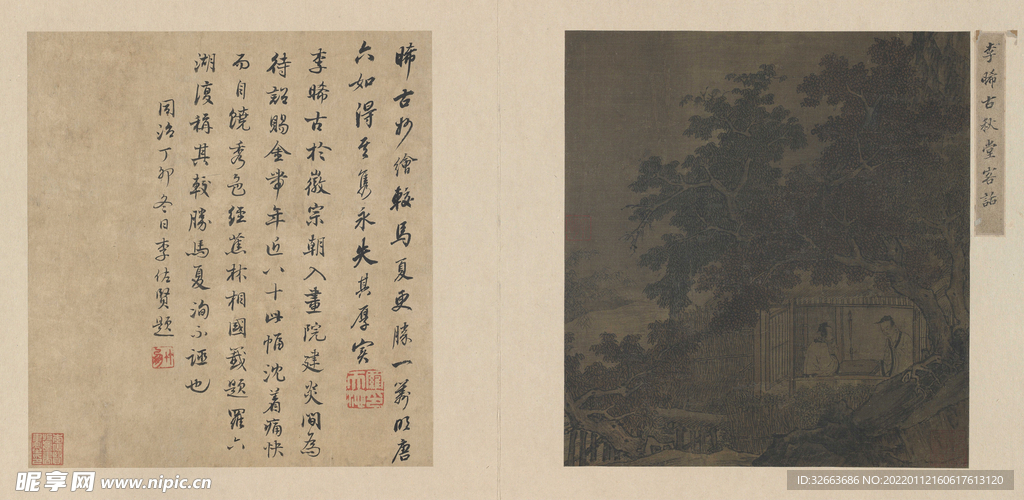 李晞古秋堂客話
晞古妙繪較馬夏更勝一籌明唐
六如得其雋永失其厚實
李晞古於徽宗朝入畫院建炎間為
待詔賜金帶年近八十此幅沈着痛快
而自饒秀色經蕉林相國籤題羅六
湖復稱其較勝馬夏洵不誣也
同治丁卯冬日李佐賢題
昵享网 www.nipic.cn
ID:32663686 NO:20220112160617613120